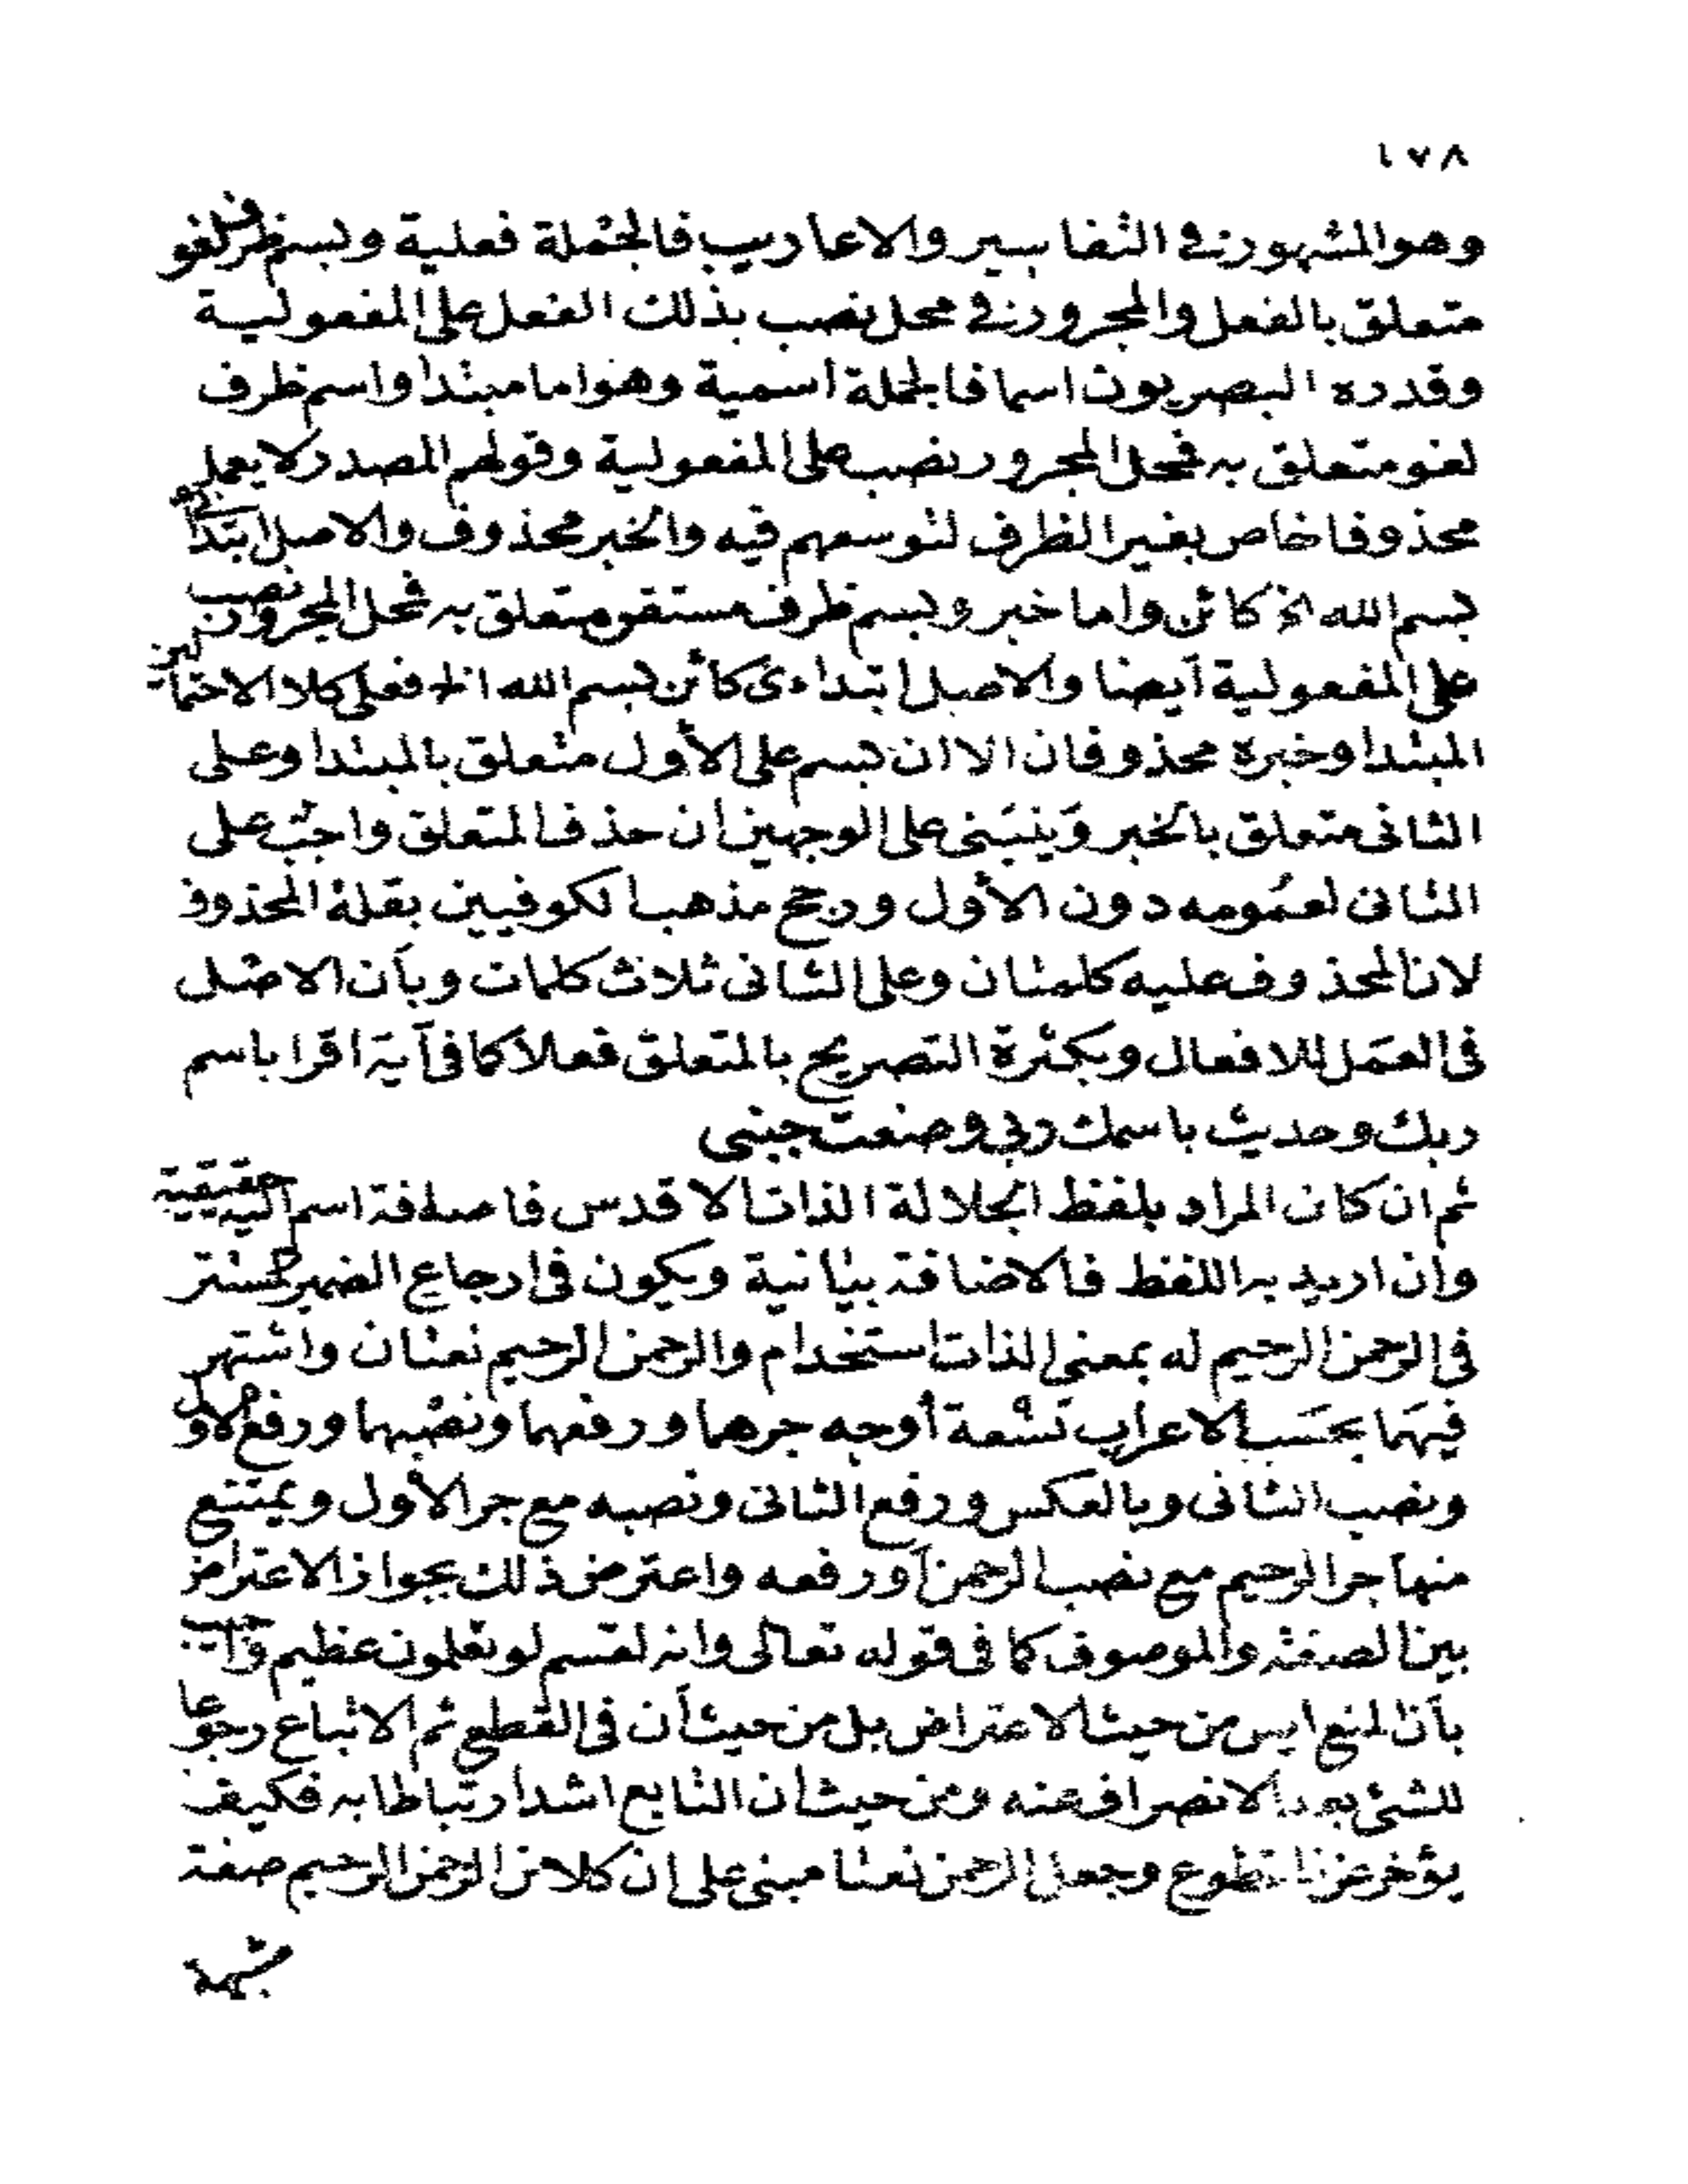 ١٧٨
وهو المشهور في التفاسير والاعاريب فالجملة فعلية وبسم ظرف لغو
متعلق بالفعل والمجرور في محل نصب بذلك الفعل على المفعولية
وقدره البصريون اسما فالجملة اسمية وهو اما مبتدا واسم ظرف
لغو متعلق به فمحل المجرور نصب على المفعولية وقولهم المصدر لا يعمل
محذوفا خاص بغير الظرف لتوسعهم فيه والخبر محذوف والاصل ابتداءى
بسم الله الخ كائن واما خبر وبسم ظرف مستقر متعلق به فمحل المجرور نصب
على المفعولية أيضا والاصل ابتداءى كائن بسم الله الخ فعلى كلا الاحتمالين
المبتدا وخبره محذوفان الا ان بسم على الأول متعلق بالمبتدا وعلى
الثانى متعلق بالخبر وَينبَنى على الوجهين ان حذف المتعلق واجب على
الثانى لعمُومه دون الأول ورجح مذهب الكوفيين بقلة المحذوف
لان المحذوف عليه كلمتان وعلى الثانى ثلاث كلمات وبأن الاصل
فى العمَل للافعال وبكثرة التصريح بالمتعلق فعلا كما فى آية اقرا باسم
ربك وحديث باسمك ربى وضعت جنبى
ثم ان كان المراد بلفظ الجلالة الذات الاقدس فاضافة اسم اليه حقيقية
وان اريد به اللفظ فالاضافة بيانية ويكون فى ارجاع الضمير المستتر
فى الرحمن الرحيم له بمعنى الذات استخدام والرحمن الرحيم نعتان واشتهر
فيهَما بحسَب الاعراب تسْعة أوجه جرهما ورفعهما ونصْبهما ورفع الاول
ونصب الثانى وبالعكس ورفع الثانى ونصبه مع جر الأول ويمتنع
منها جر الرحيم مع نصب الرحمن أو رفعه واعترض ذلك بجواز الاعتراض
بين الصفة والموصوف كما فى قوله تعالى وانه لقسم لو تعلمون عظيم واجيب
بأن المنع ليس من حيث الاعتراض بل من حيث أن فى القطع ثم الاتباع رجوعا
للشئ بعد الانصراف عنه ومن حيث ان التابع اشد ارتباطا به فكيف
يؤخر عن المقطوع وجعل الرحمن نعتا مبنى على ان كلا من الرحمن الرحيم صفة
مشبهة